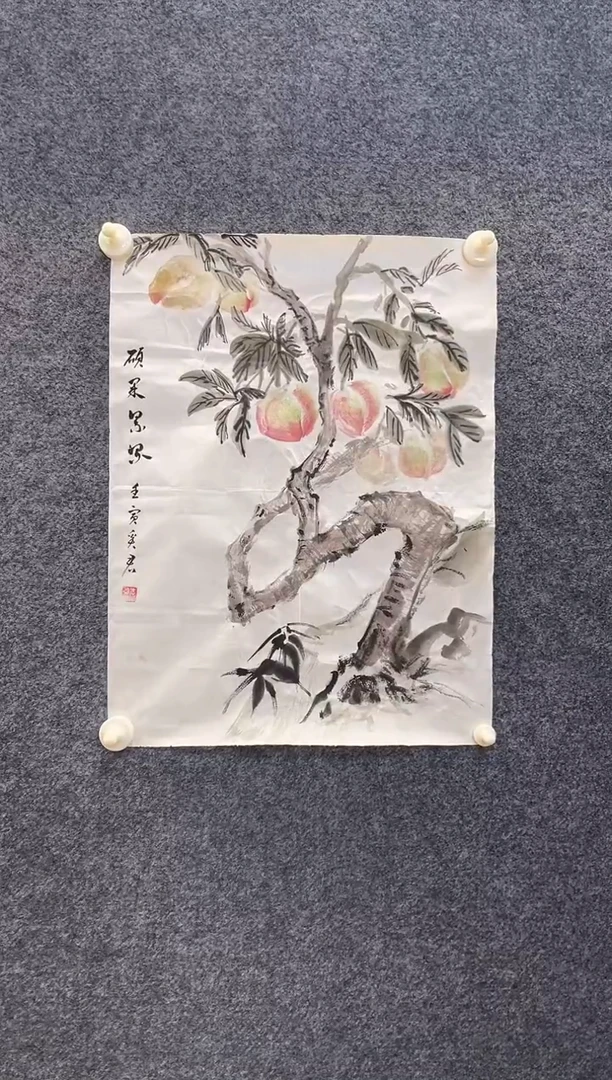 硕果累累
壬寅奚君